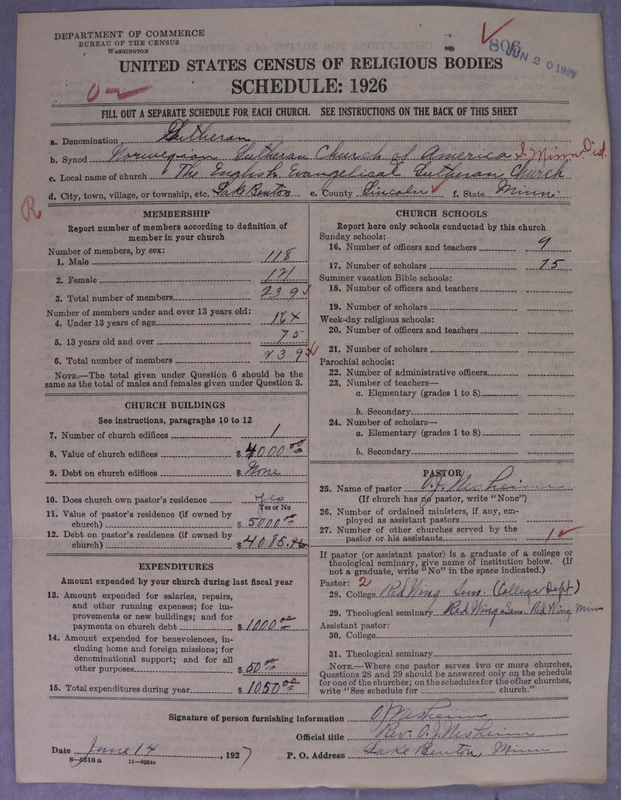 DEPARTMENT OF COMMERCE
BUREAU OF THE CENSUS
WASHINGTON
806
JUN 20 1927
UNITED STATES CENSUS OF RELIGIOUS BODIES
SCHEDULE: 1926
FILL OUT A SEPARATE SCHEDULE FOR EACH CHURCH. SEE INSTRUCTIONS ON THE BACK OF THIS SHEET
a. Denomination Lutheran
b. Synod Norwegian Lutheran Church of America S. Minn Dist.
c. Local name of church The English Evangelical Lutheran Church
d. City, town, village, or township, etc. Lake Benton e. County Lincoln f. State Minn.
R
MEMBERSHIP
Report number of members according to definition of member in your church
Number of members, by sex:
1. Male 118
2. Female 121
3. Total number of members 239
Number of members under and over 13 years old:
4. Under 13 years of age 164
5. 13 years old and over 75
6. Total number of members 239
NOTE.—The total given under Question 6 should be the same as the total of males and females given under Question 3.
CHURCH BUILDINGS
See instructions, paragraphs 10 to 12
7. Number of church edifices 1
8. Value of church edifices $4000.00
9. Debt on church edifices $ None
10. Does church own pastor's residence Yes
Yes or No
11. Value of pastor's residence (if owned by church) $5000.00
12. Debt on pastor's residence (if owned by church) $4085.
EXPENDITURES
Amount expended by your church during last fiscal year
13. Amount expended for salaries, repairs, and other running expenses; for improvements or new buildings; and for payments on church debt $1000.00
14. Amount expended for benevolences, including home and foreign missions; for denominational support; and for all other purposes $50.00
15. Total expenditures during year $1050.00
CHURCH SCHOOLS
Report here only schools conducted by this church
Sunday schools:
16. Number of officers and teachers 9
17. Number of scholars 75
Summer vacation Bible schools:
18. Number of officers and teachers
19. Number of scholars
Week-day religious schools:
20. Number of officers and teachers
21. Number of scholars
Parochial schools:
22. Number of administrative officers
23. Number of teachers—
a. Elementary (grades 1 to 8)
b. Secondary
24. Number of scholars—
a. Elementary (grades 1 to 8)
b. Secondary
PASTOR
25. Name of pastor O. J. Nesheim
(If church has no pastor, write "None")
26. Number of ordained ministers, if any, employed as assistant pastors
27. Number of other churches served by the pastor or his assistants 1
If pastor (or assistant pastor) is a graduate of a college or theological seminary, give name of institution below. (If not a graduate, write "No" in the space indicated.)
Pastor: 2
28. College Red Wing Sem. (College Dept)
29. Theological seminary Red Wing Sem. Red Wing Minn
Assistant pastor:
30. College
31. Theological seminary
NOTE.—Where one pastor serves two or more churches, Questions 28 and 29 should be answered only on the schedule for one of the churches; on the schedules for the other churches, write "See schedule for church."
Signature of person furnishing information O J Nesheim
Official title Rev. O. J. Nesheim
Date June 14, 1927 P. O. Address Lake Benton, Minn
8—5518 a 11—9064